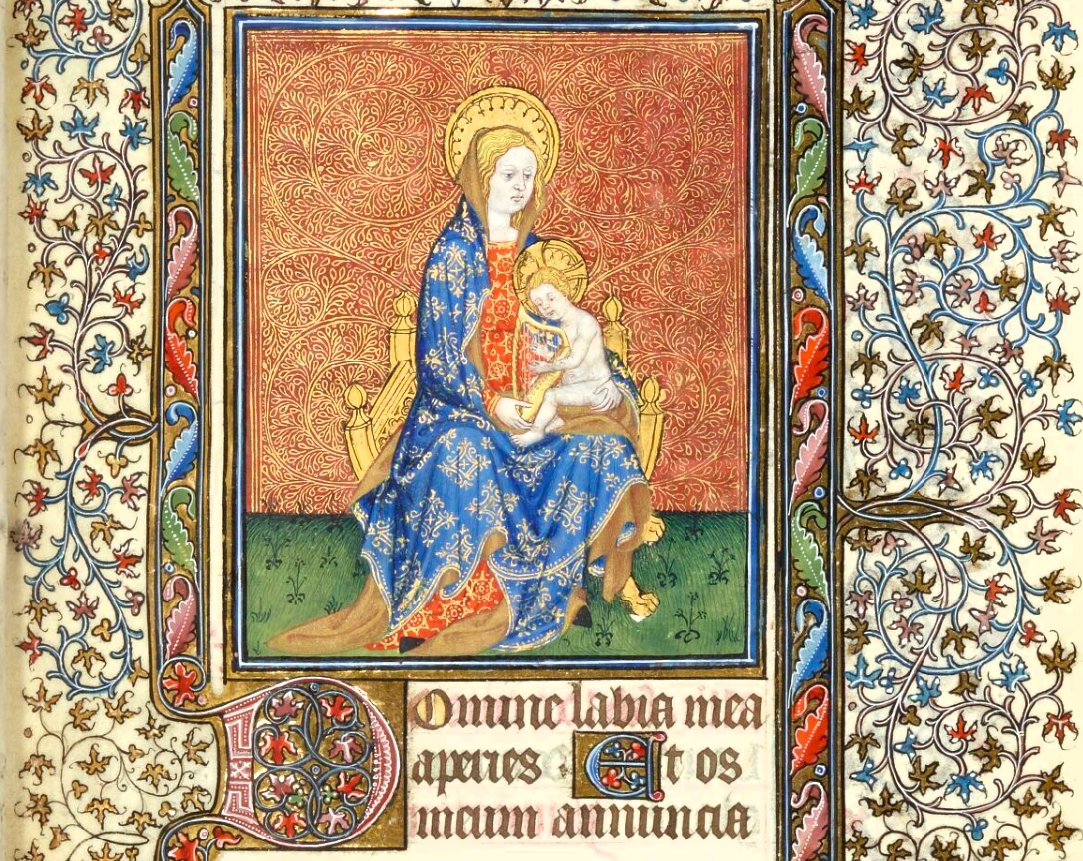 DOmine labia mea
aperies Et os
meum annuncia